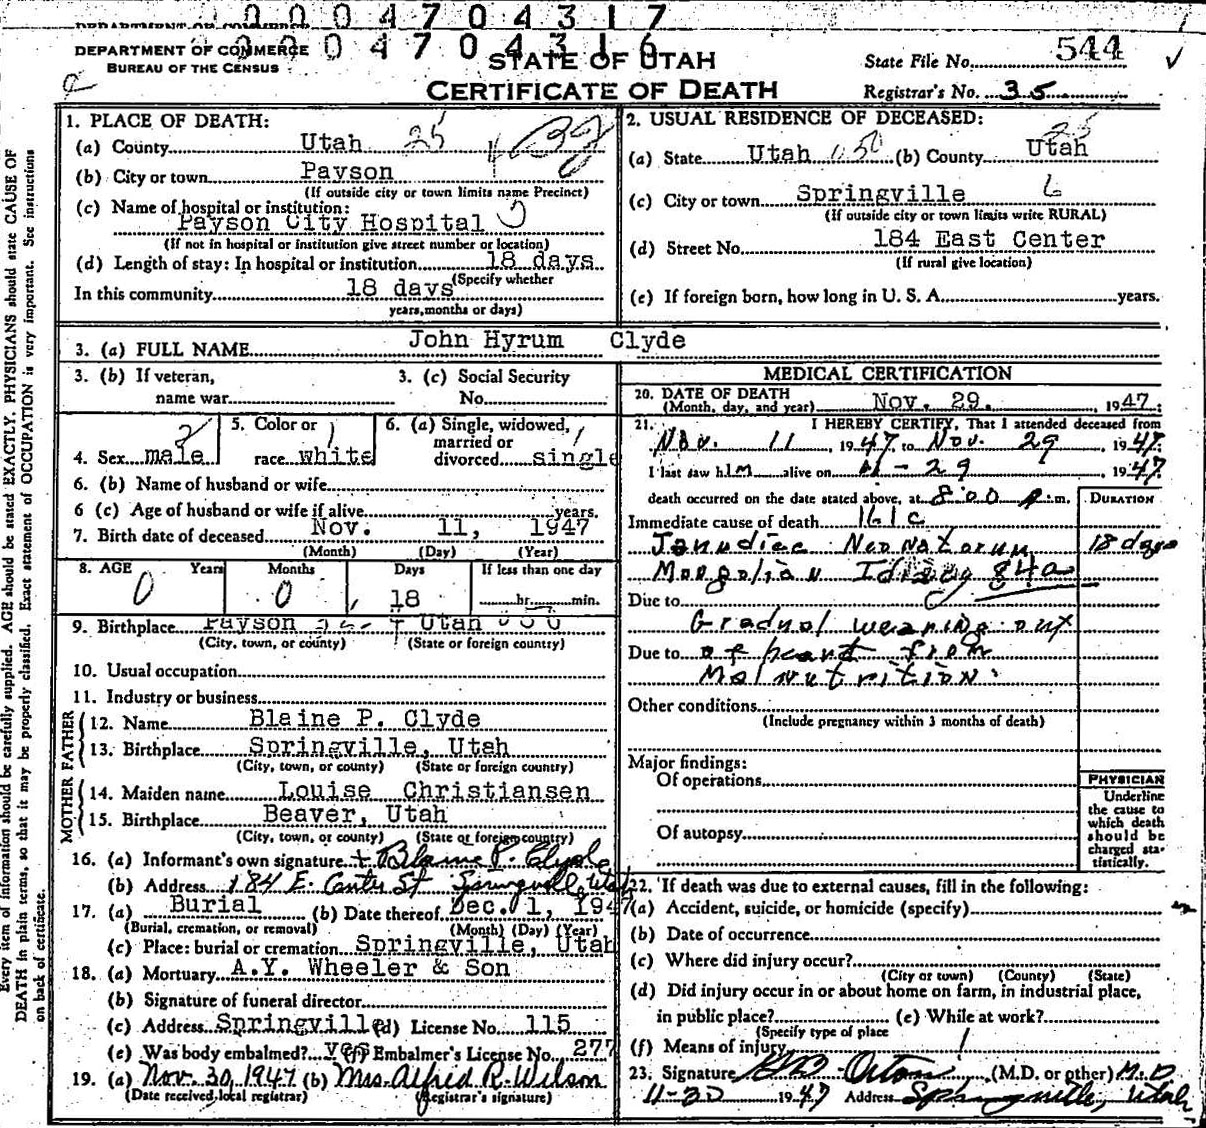 0 0 0 4 7 0 4 3 1 7
DEPARTMENT OF COMMERCE
0 0 0 4 7 0 4 3 1 6
DEPARTMENT OF COMMERCE
BUREAU OF THE CENSUS
STATE OF UTAH
CERTIFICATE OF DEATH
State File No. 544
Registrar's No. 35
Every item of information should be carefully supplied. AGE should be stated EXACTLY. PHYSICIANS should state CAUSE OF
DEATH in plain terms, so that it may be properly classified. Exact statement of OCCUPATION is very important. See instructions
on back of certificate.
1. PLACE OF DEATH:
(a) County Utah 25
(b) City or town Payson
(If outside city or town limits name Precinct)
(c) Name of hospital or institution:
Payson City Hospital
(If not in hospital or institution give street number or location)
(d) Length of stay: In hospital or institution 18 days
(Specify whether
In this community 18 days
years, months or days)
2. USUAL RESIDENCE OF DECEASED:
25
(a) State Utah 050 (b) County Utah
(c) City or town Springville 6
(If outside city or town limits write RURAL)
(d) Street No. 184 East Center
(If rural give location)
(e) If foreign born, how long in U. S. A. years.
3. (a) FULL NAME John Hyrum Clyde
3. (b) If veteran,
name war
3. (c) Social Security
No.
4. Sex male
5. Color or
race white
6. (a) Single, widowed,
married or
divorced single
6. (b) Name of husband or wife
6 (c) Age of husband or wife if alive years.
7. Birth date of deceased Nov. 11, 1947
(Month) (Day) (Year)
8. AGE Years Months Days If less than one day
0 0 18 hr. min.
9. Birthplace Payson Utah
(City, town, or county) (State or foreign country)
10. Usual occupation
11. Industry or business
FATHER
12. Name Blaine P. Clyde
13. Birthplace Springville, Utah
(City, town, or county) (State or foreign country)
MOTHER
14. Maiden name Louise Christiansen
15. Birthplace Beaver, Utah
(City, town, or county) (State or foreign country)
16. (a) Informant's own signature + Blaine P. Clyde
(b) Address 184 E. Center St Springville, Utah
17. (a) Burial (b) Date thereof Dec. 1, 1947
(Burial, cremation, or removal) (Month) (Day) (Year)
(c) Place: burial or cremation Springville, Utah
18. (a) Mortuary A.Y. Wheeler & Son
(b) Signature of funeral director
(c) Address Springville (d) License No. 115
(e) Was body embalmed? yes (f) Embalmer's License No. 277
19. (a) Nov. 30, 1947 (b) Mrs. Alfred R. Wilson
(Date received local registrar) (Registrar's signature)
MEDICAL CERTIFICATION
20. DATE OF DEATH
(Month, day, and year) Nov. 29. , 1947.
21. I HEREBY CERTIFY, That I attended deceased from
Nov. 11 , 1947 to Nov. 29 , 1947.
I last saw him alive on 11-29 , 1947
death occurred on the date stated above, at 8:00 p. m.
DURATION
Immediate cause of death 161c
Janudiac Neonatorum 18 days
Mongolian Idiocy 84a
Due to
Gradual wearing out
Due to of heart from
Malnutrition.
Other conditions
(Include pregnancy within 3 months of death)
Major findings:
Of operations
Of autopsy
PHYSICIAN
Underline
the cause to
which death
should be
charged sta-
tistically.
22. If death was due to external causes, fill in the following:
(a) Accident, suicide, or homicide (specify)
(b) Date of occurrence
(c) Where did injury occur?
(City or town) (County) (State)
(d) Did injury occur in or about home on farm, in industrial place,
in public place? (e) While at work?
(Specify type of place
(f) Means of injury
23. Signature Orton (M.D. or other) M.D
11-30 1947 Address Springville, Utah